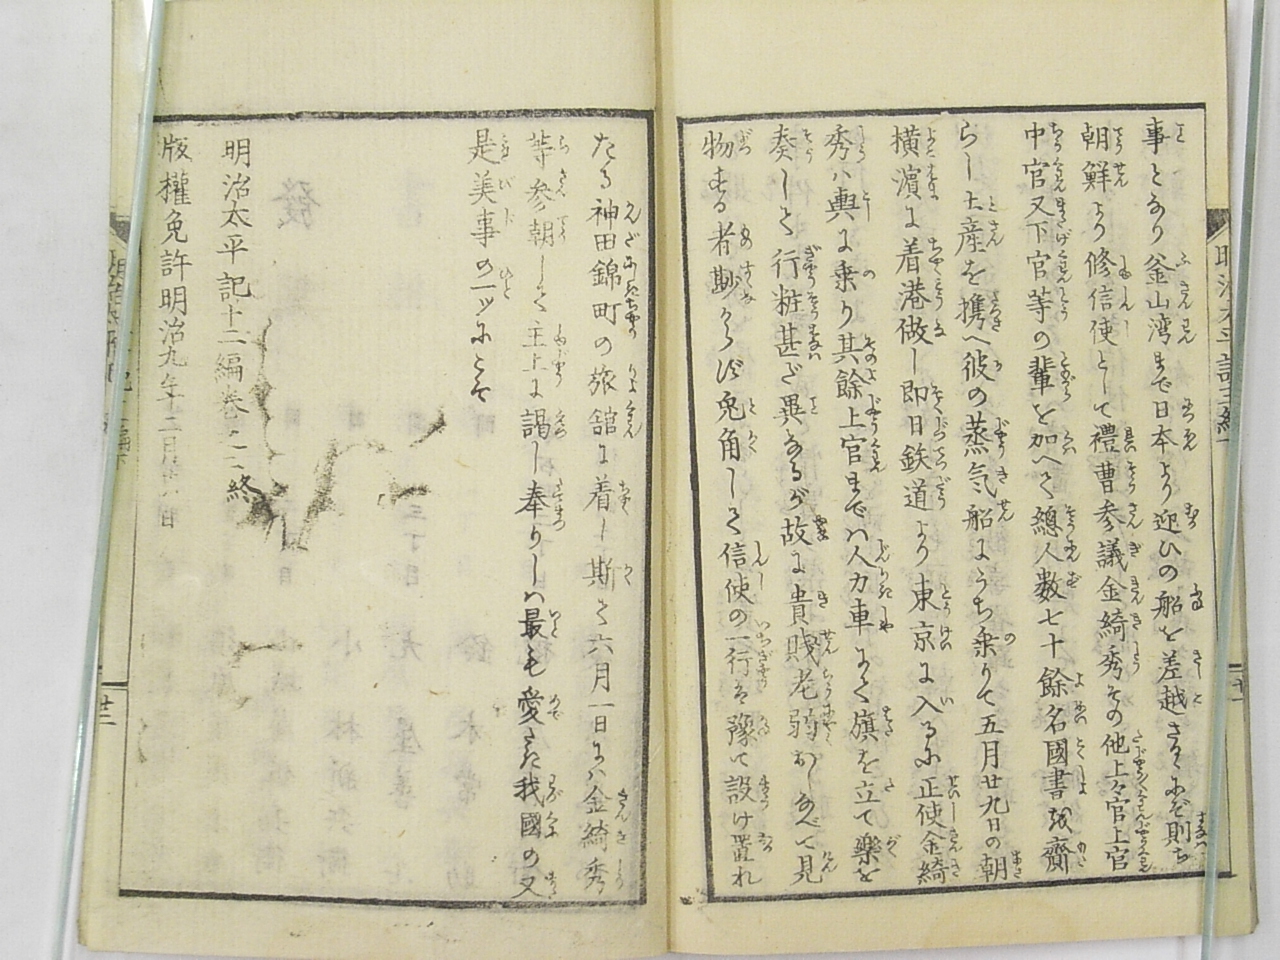 事となり釜山湾まで日本より迎ひの船を差越さるにぞ則ち
朝鮮より修信使として禮曹参議金綺秀その他上々官上官
中官又下官等の輩を加へて總人数七十餘名國書を齎
らし土産を携へ彼の蒸気船にうち乗りて五月廿九日の朝
横濵に着港做し即日鉄道より東京に入るに正使金綺
秀ハ輿に乗り其餘上官までハ人力車にて旗を立て樂を
奏して行粧甚だ異なるが故に貴賤老弱おしなべて見
物する者尠からず兎角して信使の一行は豫て設け置れ
たる神田錦町の旅舘に着し斯て六月一日にハ金綺秀
等参朝して主上に謁し奉りしハ最も愛たき我國の又
是美事の一ツにこそ
明治太平記十二編巻之二終
版權免許明治九年二月廿八日